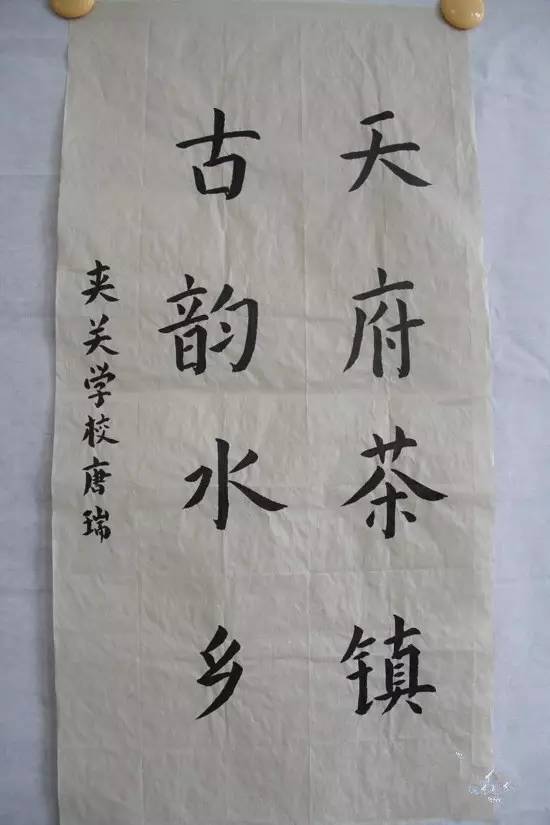 天府茶镇
古韵水乡
夹关学校唐瑞